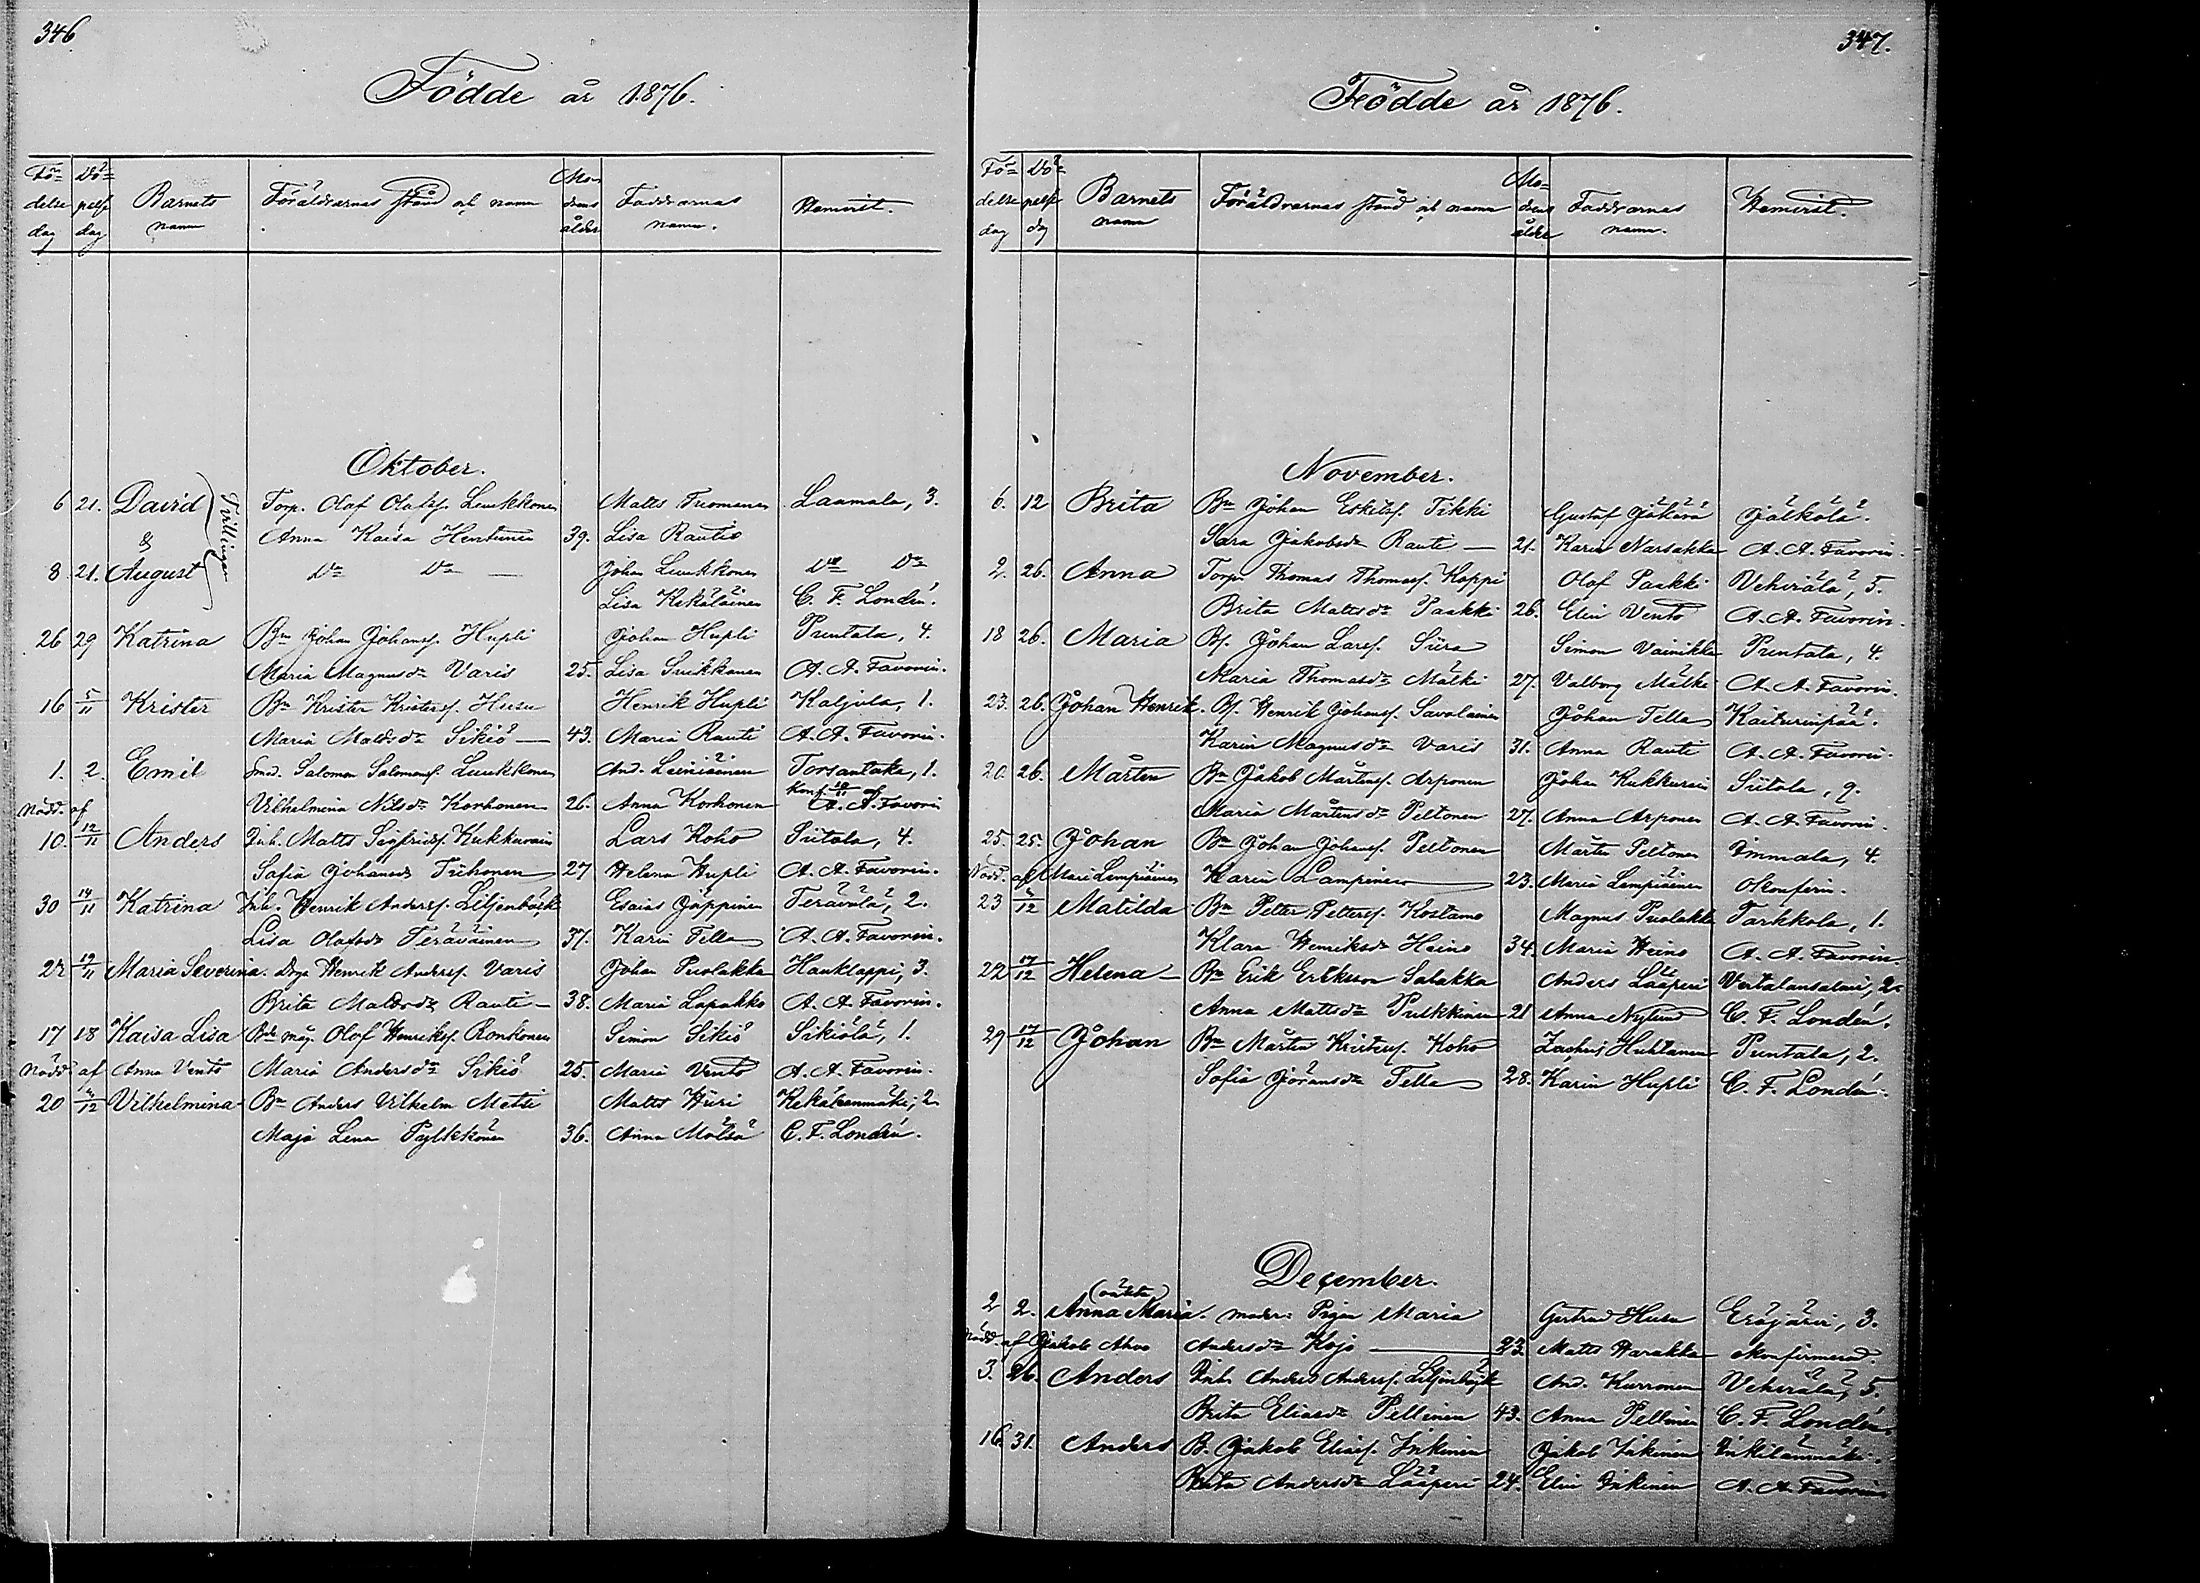 346
Födde år 1876.
Fö= delse dag
Dö= pelse dag
Barnets namn
Föräldrarnas stånd och namn
Mo= drens ålder
Faddrarnas namn.
Hemvist.
Oktober.
6 21. David Tvillingar Torp. Olof Olofsf. Luukkonen Matts Tuomanen Laamala, 3.
& Anna Kaisa Hentunen 39. Lisa Rautio
8. 21. August Do Do — Johan Luukkonen Do Do
Lisa Kekäläinen C. F. Londén.
26 29 Katrina Bn Johan Johansf. Hupli Johan Hupli Puntala, 4.
Maria Magnusdr Varis 25. Lisa Suikkanen A. A. Favorin.
16 5/11 Krister Bn Krister Kristersf. Husu Henrik Hupli Kaljola, 1.
Maria Mattsdr Sikiö — 43. Maria Rauti A. A. Favorin.
1. 2. Emil Smed. Salomon Salomonsf. Luukkonen And. Leiniäinen Torsantaka, 1.
Nödd. af Vilhelmina Nilsdr Korhonen 26. Anna Korhonen Konf. af A. A. Favorin
10. 12/11 Anders Inh. Matts Sigfridsf. Kukkurain Lars Koho Sütola, 4.
Sofia Johansdr Tiihonen 27 Helena Hupli A. A. Favorin.
30 14/11 Katrina Inh. Henrik Andersf. Liljenbäck Esaias Jäppinen Terävälä, 2.
Lisa Olofsdr Teräväinen 37. Karin Tella A. A. Favorin.
22 19/11 Maria Severina. Drg. Henrik Andersf. Varis Johan Puolakka Hauklappi, 3.
Brita Mattsdr Rauti — 38. Maria Lapakko A. A. Favorin.
17 18 Kaisa Lisa Bde måg Olof Henriksf. Ronkonen Simon Sikiö Sikiölä, 1.
Nödd. af Anna Vento Maria Andersdr Sikiö 25. Maria Vento A. A. Favorin.
20 /12 Vilhelmina Bn Anders Vilhelm Metsi Matts Hiiri Kekäleenmäki, 2.
Maja Lena Pylkkönen 36. Anna Mölsä C. F. Londén.
347.
Födde år 1876.
Fö= delse dag
Dö= pelse dag
Barnets namn
Föräldrarnas stånd och namn
Mo= dens ålder
Faddrarnas namn.
Hemvist.
November.
6. 12 Brita Bn Johan Eskilsf. Tikki Gustaf Jäkärä Jälkölä.
Sara Jakobsdr Rauti — 21. Karin Narsakka A. A. Favorin.
2. 26. Anna Torp. Thomas Thomasf. Koppi Olof Paakki Vehviälä, 5.
Brita Mattsdr Paakki 26. Elin Vento A. A. Favorin.
18 26. Maria Bf. Johan Larsf. Siira Simon Vainikka Puntala, 4.
Maria Thomasdr Mälki 27. Valborg Mälki A. A. Favorin.
23. 26. Johan Henrik. Bf. Henrik Johansf. Savolainen Johan Tella Kaiturinpää.
Karin Magnusdr Varis 31. Anna Rauti A. A. Favorin.
20. 26. Mårten Bn Jakob Mårtensf. Arponen Johan Kukkurain Sütola, 9.
Maria Mårtensdr Peltonen 27. Anna Arponen A. A. Favorin.
25. 25. Johan Bn Johan Johansf. Peltonen Mårten Peltonen Immala, 4.
Nödd. af Mari Lempiäinen Karin Lampinen 23. Maria Lempiäinen Okonferm.
23 /12 Matilda Bn Petter Pettersf. Kostamo Magnus Puolakka Tarkkola, 1.
Klara Henriksdr Heino 34. Maria Heino A. A. Favorin.
22 17/12 Helena — Bn Erik Eriksson Salakka Anders Lääperi Vertalansalmi, 2.
Anna Mattsdr Pulkkinen 21 Anna Nylund C. F. Londén.
29 17/12 Johan Bn Mårten Kristersf. Koho Zachris Huhtanen Puntala, 2.
Sofia Göransdr Tella 28. Karin Hupli C. F. Londén.
December.
(oäkta)
2 2. Anna Maria. moder: Pigan Maria Gertrud Husu Eräjärvi, 3.
Nödd. af Jakob Ahvo Andersdr Kojo — 23. Matts Harakka okonfirmerad.
3. 26. Anders Inh. Anders Andersf. Liljenbäck And. Kurronen Vehviälä, 5.
Brita Eliasdr Pellinen 43. Anna Pellinen C. F. Londén.
16. 31. Anders B. Jakob Eliasf. Inkinen Jakob Inkinen Inkilänmäki.
Brita Andersdr Lääperi 24. Elin Inkinen A. A. Favorin